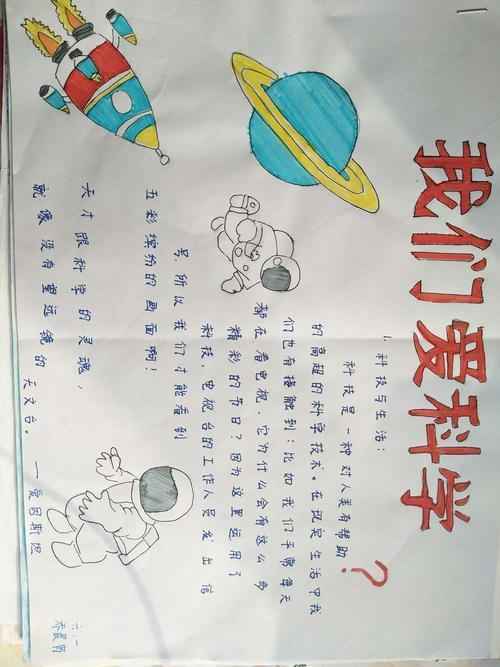 我们爱科学
?
1.科技与生活:
科技是一种对人类有帮助
的高超的科学技术。在现实生活中我
们也有接触到:比如我们平常每天
都在看电视,它为什么会有这么多
精彩的节目?因为这里运用了
科技,电视台的工作人员发出信
号,所以我们才能看到
五彩缤纷的画面啊!
天才跟科学的灵魂,
就像没有望远镜的天文台。
——爱因斯坦
六、二